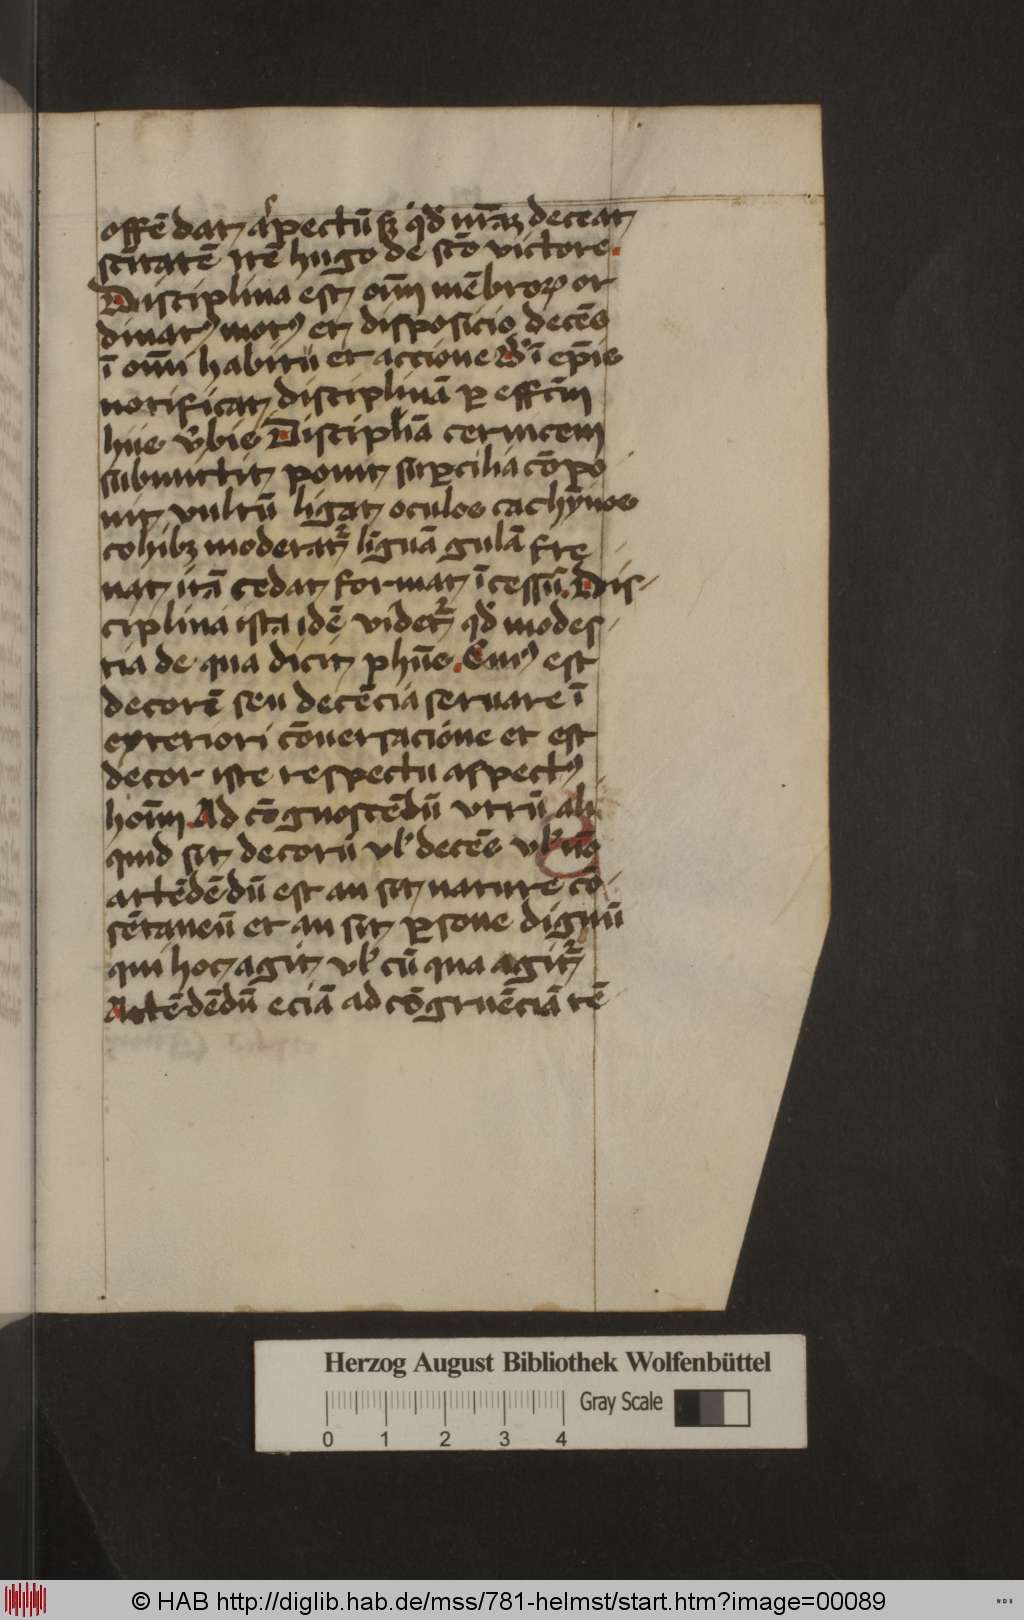 offēdat aspectū sꝫ qd̄ nr̄aꝫ deceat
sc̄itatē Itē hugo de sc̄o victore.
Disciplina est om̄ mēbroꝝ or
dinatꝰ motꝰ et disposicio decēs
ī om̄i habitu et accione
notificat disciplinā ꝑ effc̄m
Disciplīā ceruicem
submittit ponit suꝑcilia cōpo
nit vultū ligat oculos cachȳnos
cohibꝫ moderat᷑ liguā gulā fre
nat irā cedat format īcessū. Dis-
ciplina ista idē videt᷑ qd̄ modes-
tia de qua dicit ph̄us. Cuiꝰ est
decorē seu decēcia seruare ī
exteriori cōuersacione et est
decor iste respectu aspectꝰ
hoīm Ad cōgnoscēdū vtrū ali
quid sit decorū vl̓ decēs vl̓ nō
attēdēdū est an sit nature cō-
sētaneū et an sit ꝑsone dignū
qui hoc agit vl̓ cū qua agit᷑
Attēdēdū eciā ad cōgruēciā tē
Herzog August Bibliothek Wolfenbüttel
Gray Scale
0 1 2 3 4
© HAB http://diglib.hab.de/mss/781-helmst/start.htm?image=00089